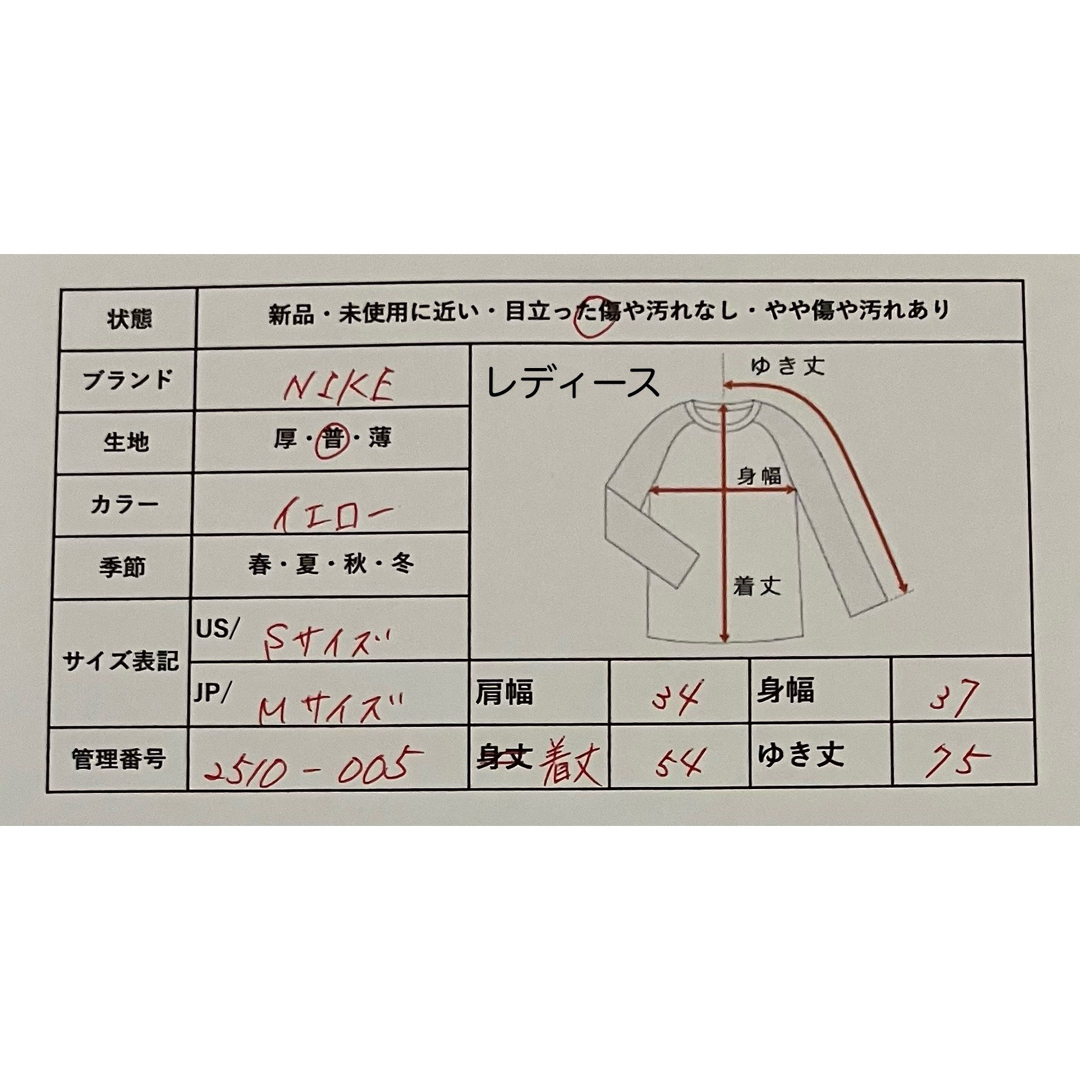 状態 新品・未使用に近い・目立った傷や汚れなし・やや傷や汚れあり
ブランド NIKE
レディース
ゆき丈
生地 厚・普・薄
身幅
カラー イエロー
季節 春・夏・秋・冬
着丈
サイズ表記
US/ Sサイズ
JP/ Mサイズ
肩幅 34 身幅 37
管理番号 2510-005
身丈 着丈 54 ゆき丈 75